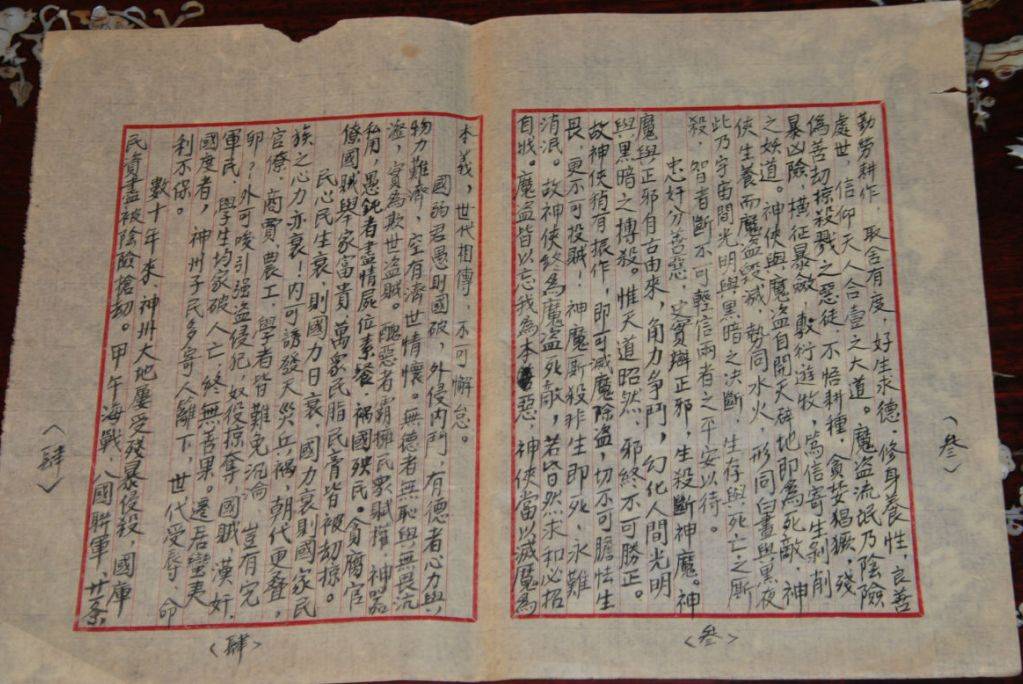 勤勞耕作，取舍有度，好生求德，修身養性，良善
處世，信仰天人合壹之大道。魔盜流氓乃陰險
偽善劫掠殺戮之惡徒，不悟耕種，貪婪猖獗，殘
暴凶險，橫征暴斂，毅行遊牧，篤信寄生剝削
之妖道。神俠與魔盜自開天辟地即為死敵，神
俠生養而魔盜毀滅，勢同水火，形同白晝與黑夜
此乃宇宙間光明與黑暗之決斷，生存與死亡之斯
殺，智者斷不可輕信兩者之平安以待。
忠奸分善惡，史實辯正邪，生殺斷神魔。神
魔與正邪自古由來，角力爭鬥，幻化人間光明
與黑暗之搏殺。惟天道昭然，邪終不可勝正。
故神俠稍有振作，即可滅魔除盜，切不可膽怯生
畏，更不可投賊！神魔斯殺非生即死，永難
消泯。故神俠終為魔盜死敵，若昏然求和必招
自戕。魔盜皆以忘我為本惡，神俠當以滅魔為
〈叁〉
〈叁〉
本義，世代相傳，不可懈怠。
國的君愚則國破，外侵内鬥，有德者心力與
物力難濟，空有濟世情懷。無德者無恥與無畏流
淫，實為欺世盜賊。醜惡者霸權民眾賦撐，神器
私用，愚鈍者盡情屍位素餐，禍國殃民。貪腐官
僚國賊舉家富貴，萬眾民脂民膏皆被劫掠。
民心民生衰，則國力日衰，國力衰則國家民
族之心力亦衰！内可誘發天災兵禍，朝代更疊，
官僚、商賈、農工、學者皆難免沉淪，豈有完
卵？外可唆引强盜侵犯，奴役掠奪，國賊，漢奸，
軍民、學生均家破人亡，終無善果。遷居蠻夷
國度者，神州子民多寄人籬下，世代受辱，命
利不保。
數十年來，神州大地屢受殘暴侵殺，國庫
民資盡被陰險搶劫。甲午海戰，八國聯軍，廿一条
〈肆〉
〈肆〉